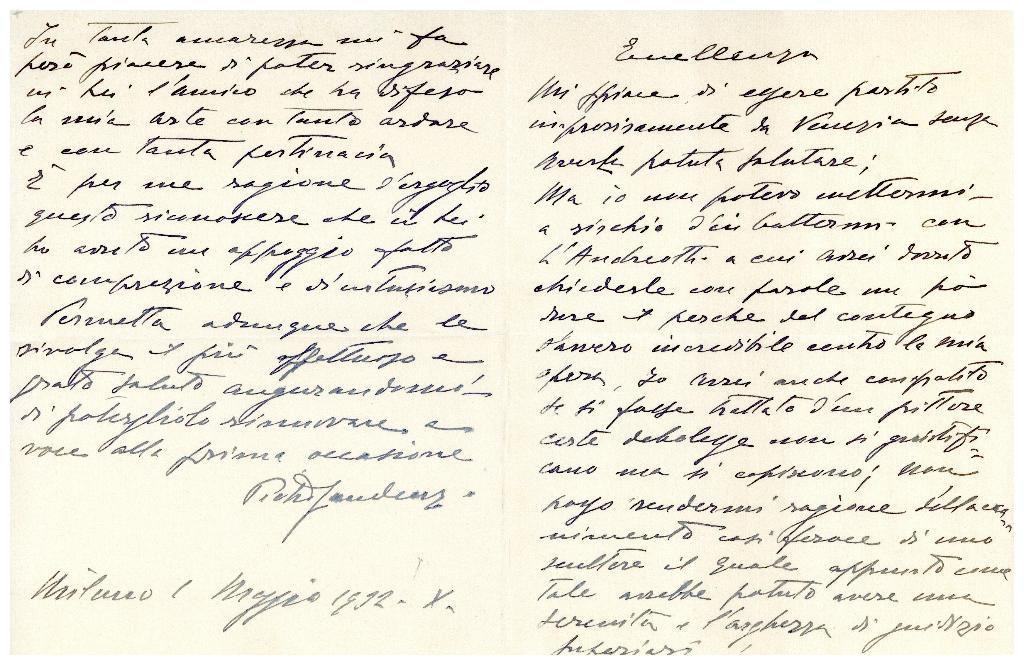 Eccellenza
Mi spiace di essere partito
improvvisamente da Venezia senza
averla potuta salutare;
Ma io non potevo mettermi
a rischio d'imbattermi con
l'Andreotti a cui avrei dovuto
chiederle con parole un pò
dure il perchè del contegno
davvero incredibile contro la mia
opera. Io avrei anche compatito
se si fosse trattato d'un pittore
certe debolezze non si giustifi=
cano ma si capiscono; non
posso rendermi ragione dell'acca=
nimento così feroce di uno
scultore il quale appunto come
tale avrebbe potuto avere una
serenità e larghezza di giudizio
superiori!
In tanta amarezza mi fa
però piacere di poter ringraziare
in Lei l'amico che ha difeso
la mia arte con tanto ardore
e con tanta pertinacia
È per me ragione d'orgoglio
questo riconoscere che in Lei
ho avuto un appoggio fatto
di comprezione e d'entusiasmo
Permetta adunque che le
rivolga il più affettuoso e
grato saluto augurandomi
di poterglielo rinnovare a
voce alla prima occasione
Pietro Gaudenzi
Milano 1 Maggio 1932 - X.